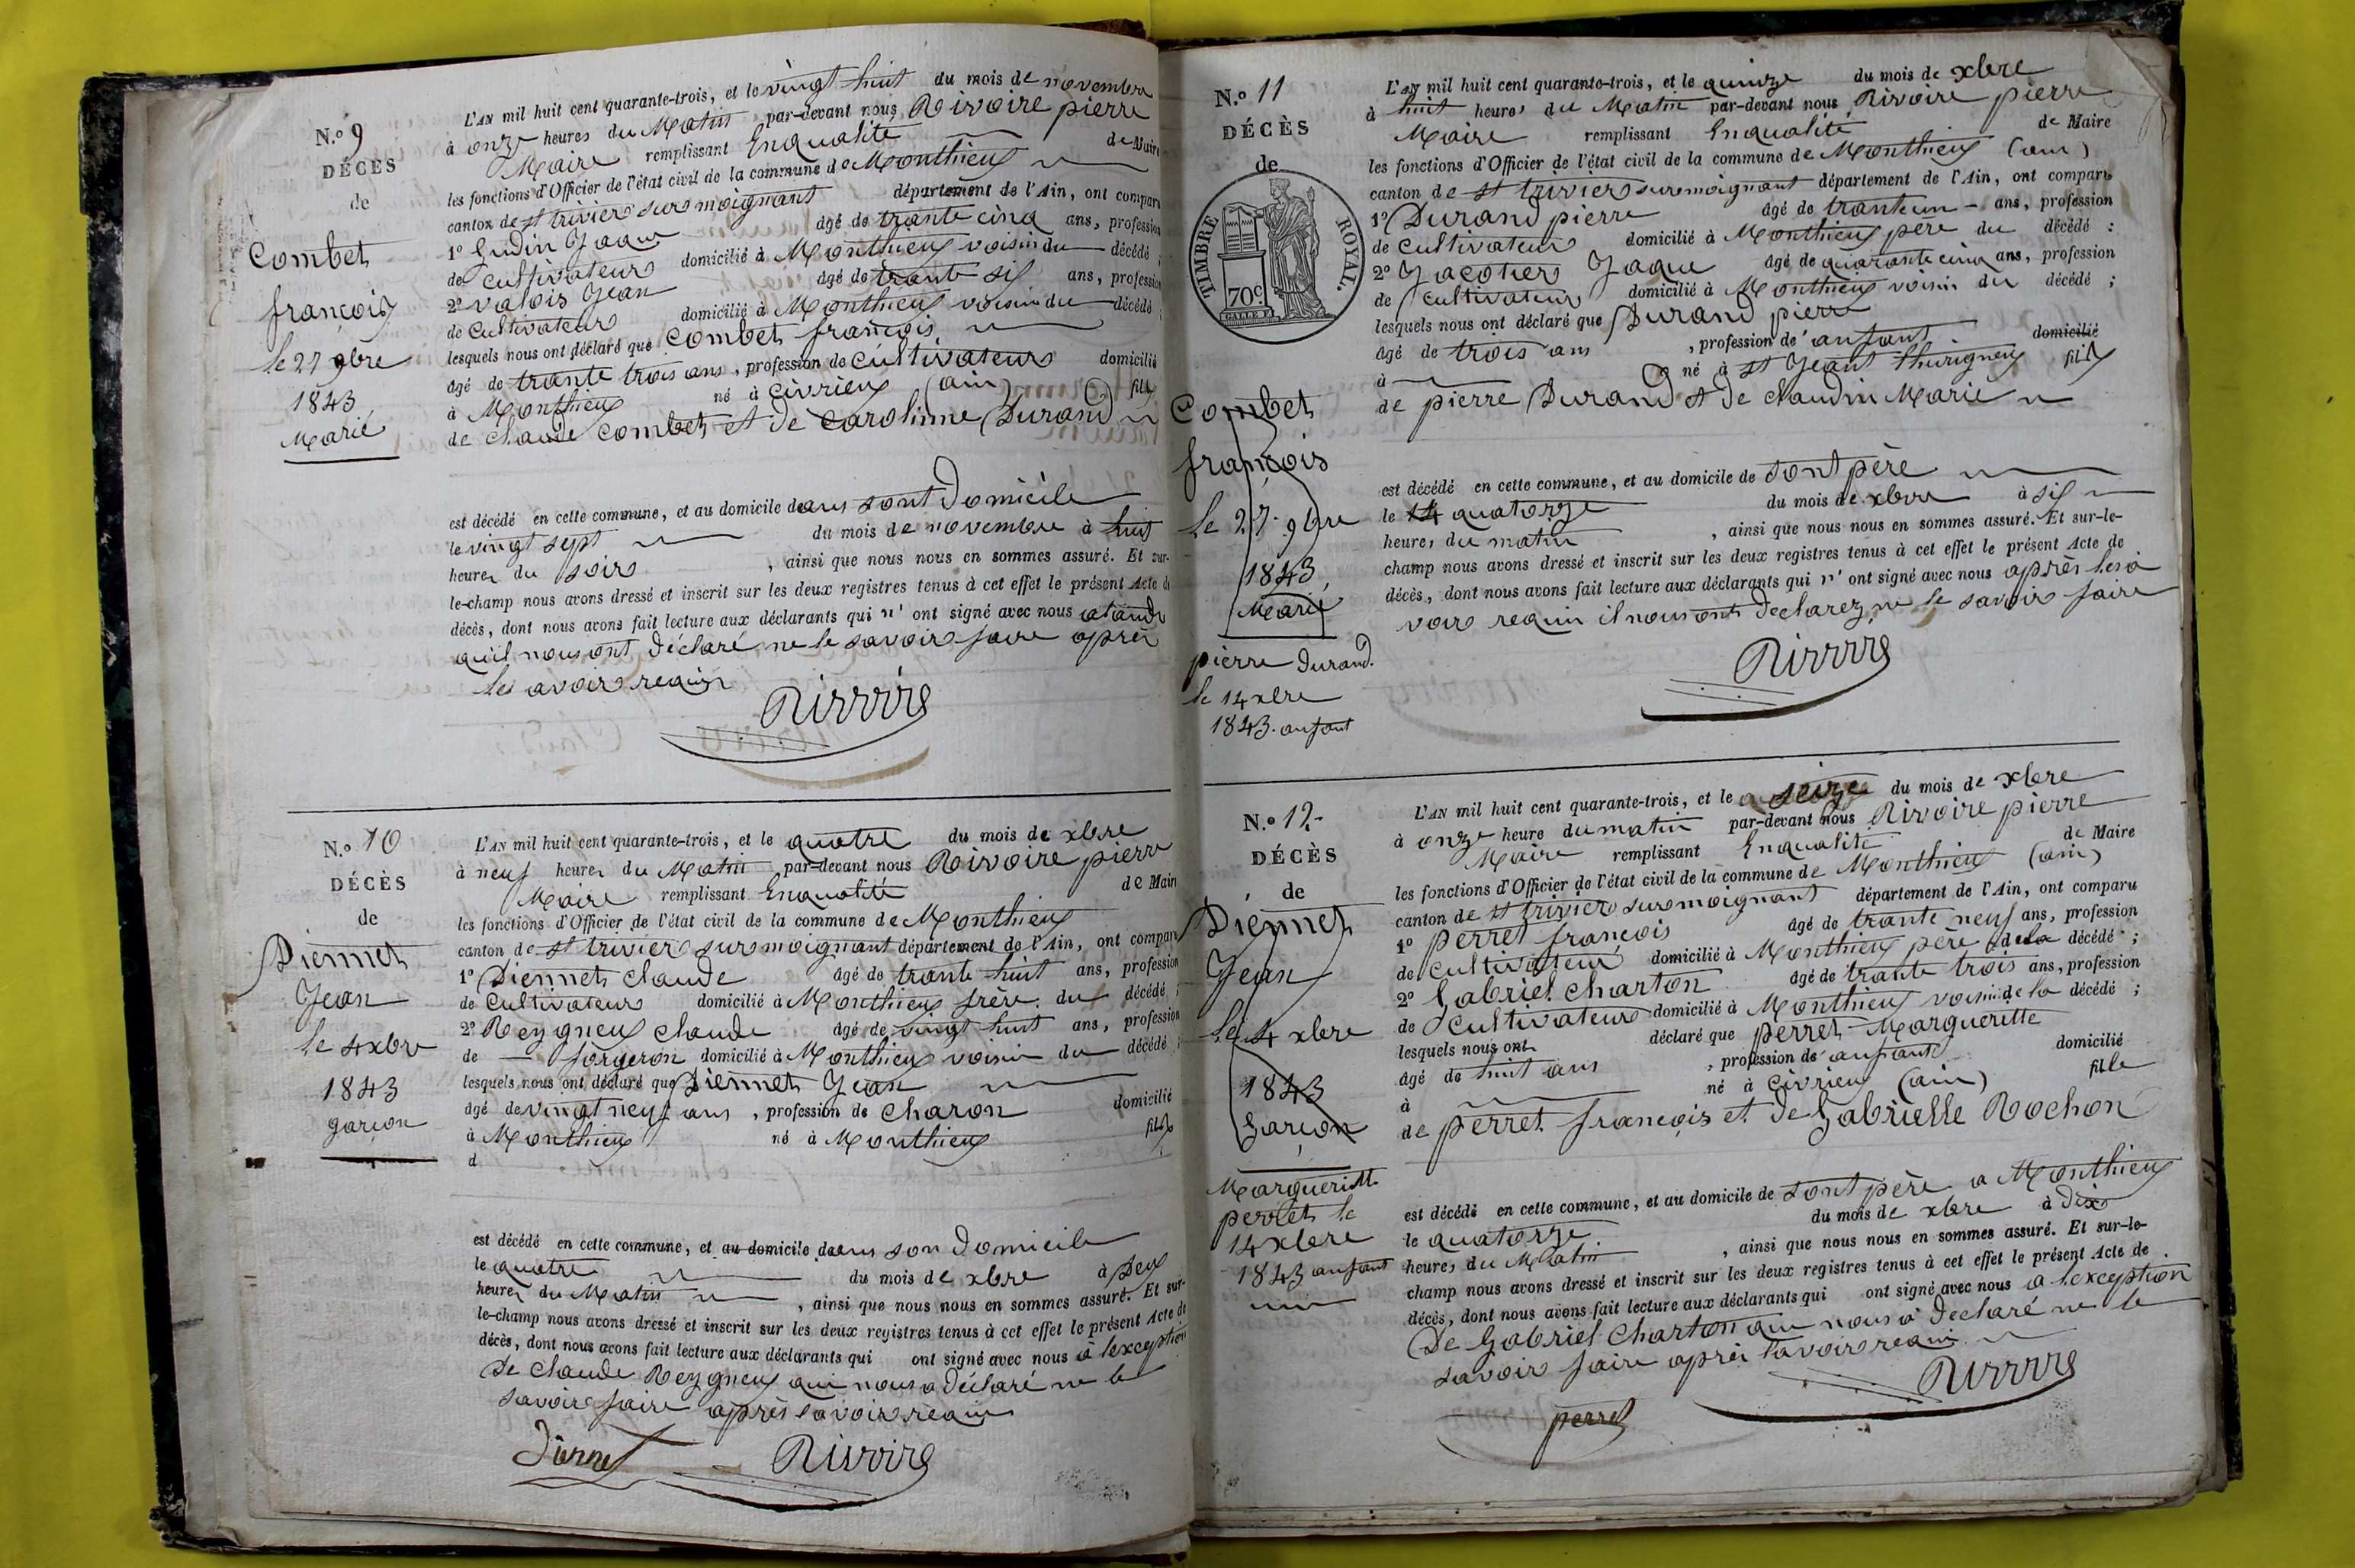 N.o 9
DÉCÈS
de
Combet
françois
le 27 9bre
1843
Marié
L'AN mil huit cent quarante-trois, et le vingt huit du mois de novembre
à onze heures du Matin par-devant nous Rivoire pierre
Maire remplissant Enqualité de Maire
les fonctions d'Officier de l'état civil de la commune de Monthieux
canton de st trivier sur moignant département de l'Ain, ont comparu
1o Gudin Jaque âgé de trante cinq ans, profession
de cultivateur domicilié à Monthieux voisin du décédé ;
2o valois Jean âgé de trante six ans, profession
de cultivateur domicilié à Monthieux voisin du décédé ;
lesquels nous ont déclaré que Combet françois
âgé de trante trois ans, profession de cultivateur domicilié
à Monthieux né à Civrieux (ain) fils
de claude Combet et de Carolinne Durand
est décédé en cette commune, et au domicile dans sont Domicile
le vingt sept du mois de novembre à huit
heures du soir, ainsi que nous nous en sommes assuré. Et sur-
le-champ nous avons dressé et inscrit sur les deux registres tenus à cet effet le présent Acte de
décès, dont nous avons fait lecture aux déclarants qui n'ont signé avec nous atandu
qu'il nous ont déclaré ne le savoir faire après
les avoir requis
Rivoire
N.o 10
DÉCÈS
de
Diennet
Jean
le 4 xbre
1843
garçon
L'AN mil huit cent quarante-trois, et le quatre du mois de xbre
à neuf heures du Matin par-devant nous Rivoire pierre
Maire remplissant Enqualité de Maire
les fonctions d'Officier de l'état civil de la commune de Monthieux
canton de st trivier sur moignant département de l'Ain, ont comparu
1o Diennet claude âgé de trante huit ans, profession
de cultivateur domicilié à Monthieux frère du décédé ;
2o Reygneux claude âgé de vingt huit ans, profession
de forgeron domicilié à Monthieux voisin du décédé ;
lesquels nous ont déclaré que Diennet Jean
âgé de vingt neuf ans, profession de charon domicilié
à Monthieux né à Monthieux fils
d
est décédé en cette commune, et au domicile dans son Domicile
le quatre du mois de xbre à Deux
heures du Matin, ainsi que nous nous en sommes assuré. Et sur-
le-champ nous avons dressé et inscrit sur les deux registres tenus à cet effet le présent Acte de
décès, dont nous avons fait lecture aux déclarants qui ont signé avec nous à lexception
De claude Reygneux qui nous a déclaré ne le
savoir faire après lavoir requis
Diennet Rivoire
N.o 11
DÉCÈS
de
TIMBRE ROYAL.
70c
Combet
françois
le 27 9bre
1843
Marié
pierre Durand.
le 14 xbre
1843. anfant
L'AN mil huit cent quarante-trois, et le quinze du mois de xbre
à huit heures du Matin par-devant nous Rivoire pierre
Maire remplissant Enqualité de Maire
les fonctions d'Officier de l'état civil de la commune de Monthieux (ain)
canton de st trivier sur moignant département de l'Ain, ont comparu
1o Durand pierre âgé de trante un ans, profession
de cultivateur domicilié à Monthieux père du décédé ;
2o Jacotier Jaque âgé de quarante cinq ans, profession
de cultivateur domicilié à Monthieux voisin du décédé ;
lesquels nous ont déclaré que Durand pierre
âgé de trois ans, profession de anfant domicilié
à né à st Jeant thurigneux fils
de pierre Durand et de claudin Marie
est décédé en cette commune, et au domicile de sont père
le 14 quatorze du mois de xbre à six
heures du matin, ainsi que nous nous en sommes assuré. Et sur-le-
champ nous avons dressé et inscrit sur les deux registres tenus à cet effet le présent Acte de
décès, dont nous avons fait lecture aux déclarants qui n'ont signé avec nous après les a
voir requis il nous ont declarez ne le savoir faire
Rivoire
N.o 12
DÉCÈS
de
Diennet
Jean
le 4 xbre
1843
Garçon
Margueritte
perret le
14 xbre
1843 anfant
L'AN mil huit cent quarante-trois, et le seize du mois de xbre
à onze heure du matin par-devant nous Rivoire pierre
Maire remplissant Enqualité de Maire
les fonctions d'Officier de l'état civil de la commune de Monthieux (ain)
canton de st trivier sur moignant département de l'Ain, ont comparu
1o perret françois âgé de trante neuf ans, profession
de cultivateur domicilié à Monthieux père de la décédé ;
2o Gabriel Charton âgé de trante trois ans, profession
de cultivateur domicilié à Monthieux voisin de la décédé ;
lesquels nous ont déclaré que perret Marguerette
âgé de huit ans, profession de anfant domicilié
à né à Civrieux (ain) fille
de perret françois et de Gabrielle Rochon
est décédé en cette commune, et au domicile de sont père a Monthieux
le quatorze du mois de xbre à dix
heures du Matin, ainsi que nous nous en sommes assuré. Et sur-le-
champ nous avons dressé et inscrit sur les deux registres tenus à cet effet le présent Acte de
décès, dont nous avons fait lecture aux déclarants qui ont signé avec nous a lexception
De Gabriel Charton qui nous a declaré ne le
savoir faire après lavoir requis
perret Rivoire